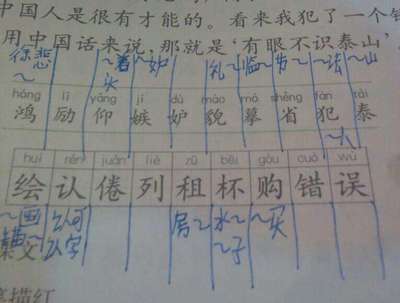 中国人是很有才能的。看来我犯了一个
用中国话来说，那就是‘有眼不识泰山’
～着 ～妒 礼～ 临～ 节～ ～法 ～山
头
hóng lì yǎng jí dù mào mó shěng fàn tài
鸿 励 仰 嫉 妒 貌 摹 省 犯 泰
～人
huì rèn juàn liè zū bēi gòu cuò wù
绘 认 倦 列 租 杯 购 错 误
～画 认可 房～ 水～ ～买
认字 ～子
描红